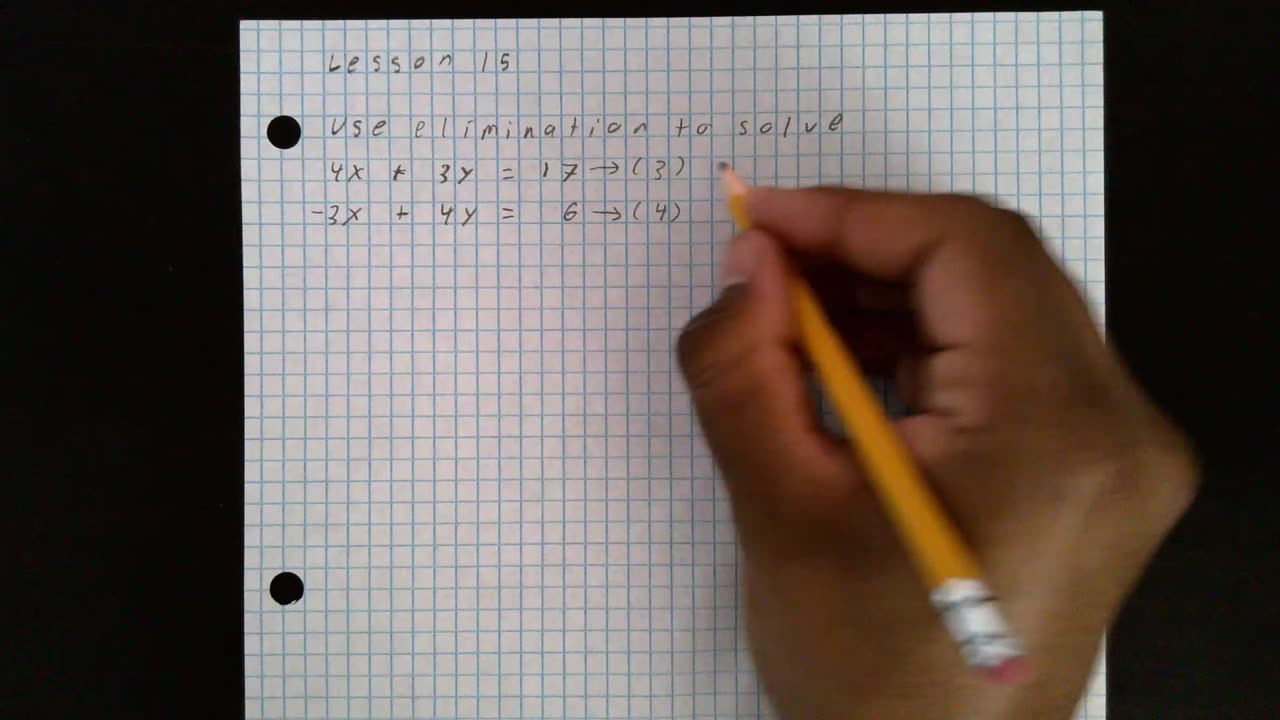 Lesson 15
Use elimination to solve
4x + 3y = 17 → (3)
-3x + 4y = 6 → (4)